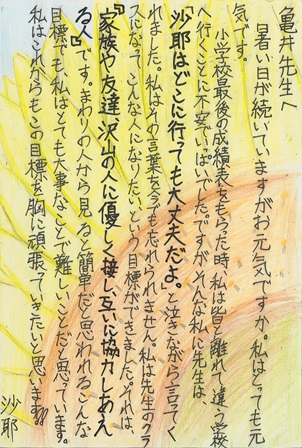 亀井先生へ
暑い日が続いていますがお元気ですか。私はとっても元
気です。
小学校最後の成績表をもらった時、私は皆と離れて違う学校
へ行くことに不安でいっぱいでした。ですがそんな私に先生は、
「沙耶はどこに行っても大丈夫だよ。」と泣きながら言ってく
れました。私はその言葉を今でも忘れられません。私は先生のクラ
スになって、こんな人になりたいという目標ができました。それは、
「家族や友達、沢山の人に優しく接し互いに協力しあえ
る人」です。まわりの人から見ると簡単だと思われるこんな
目標でも、私はとても大事なことで難しいことだと思っています。
私はこれからもこの目標を胸に頑張っていきたいと思います!!
沙耶